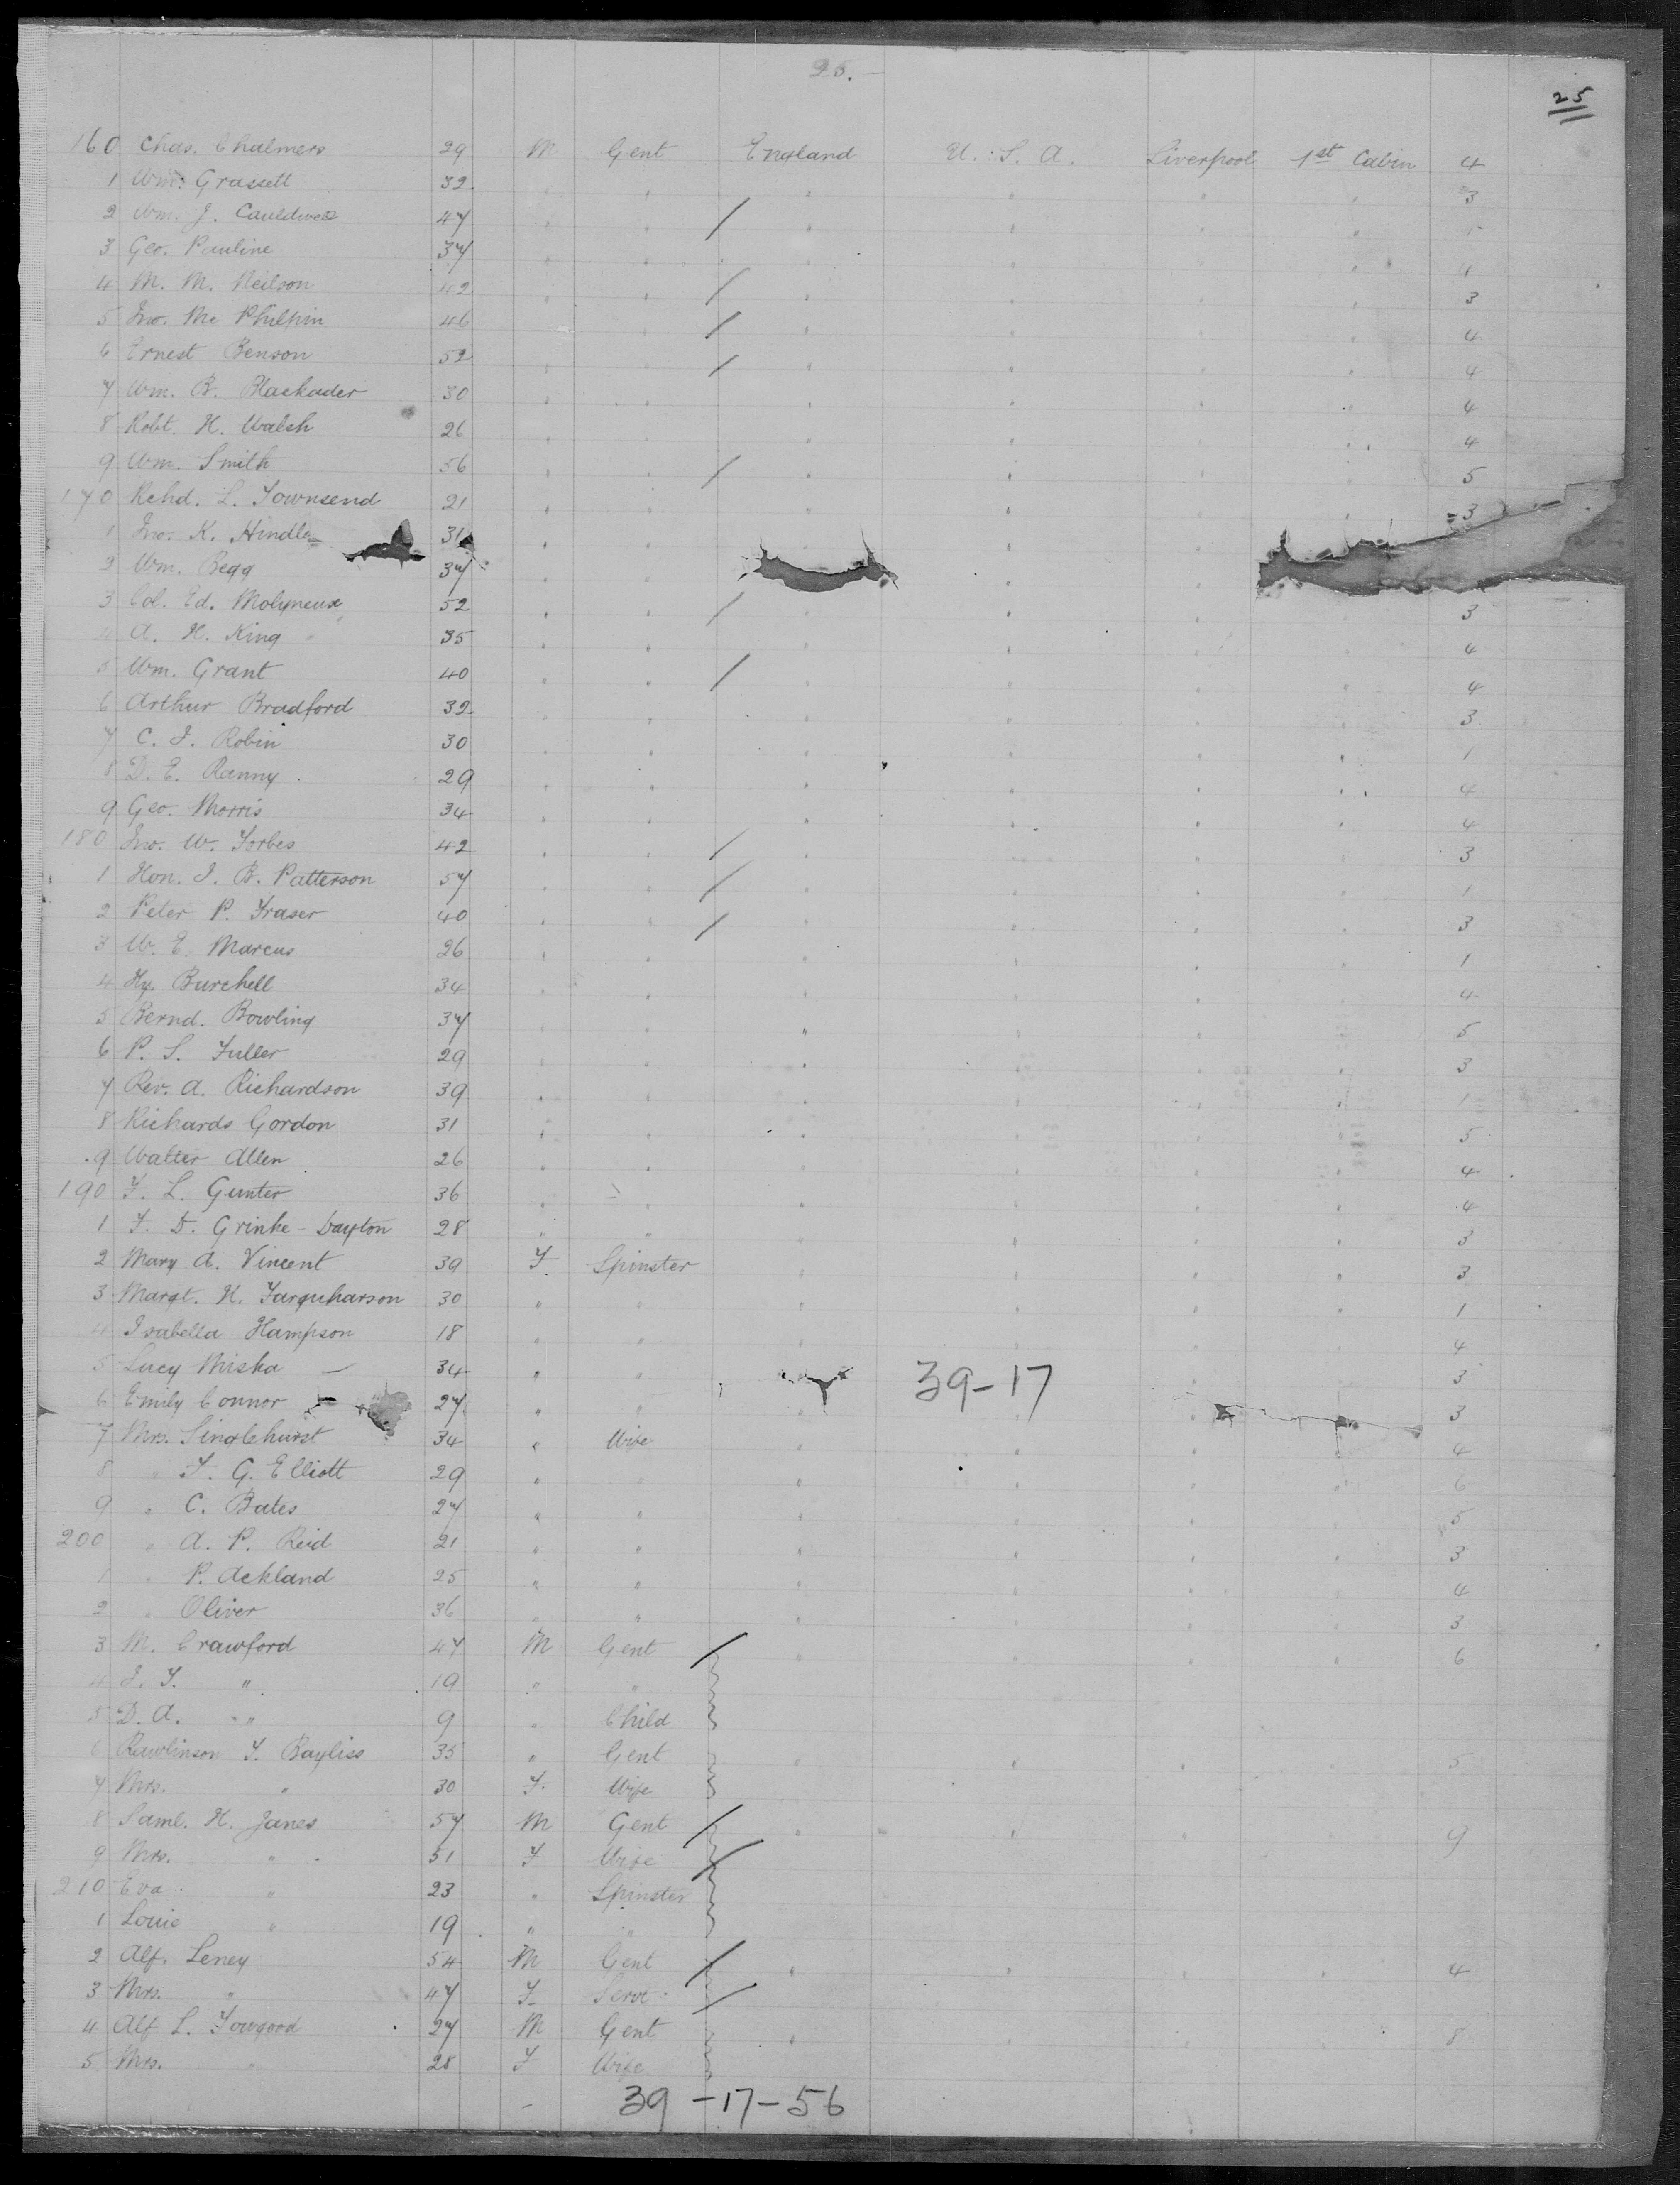 25. -
25
160 Chas. Chalmers 29 M Gent England U.S.A. Liverpool 1st Cabin 4
1 Wm. Grassett 32 " " " " " " 3
2 Wm. J. 47 " " / " " " "
3 Geo. Pauline 37 " " " " " " 4
4 M. M. Neilson 42 " " / " " " " 3
5 Jno. Mc Philpin 46 " " / " " " " 4
6 Ernest Benson 52 " " / " " " " 4
7 Wm. B. Blackader 30 " " " " " " 4
8 Robt. H. Walsh 26 " " " " " " 4
9 Wm. Smith 56 " " / " " " " 5
170 Rchd. L. Townsend 21 " " " " " " 3
1 Jno. K. Hindle 31 " " " "
2 Wm. Begg 37 " " " "
3 Col. Ed. Molyneux 52 " " / " " " 3
4 A. H. King 35 " " " " " " 4
5 Wm. Grant 40 " " / " " " " 4
6 Arthur Bradford 32 " " " " " " 3
7 C. J. Robin 30 " " " " " " 1
8 D. E. Ranny 29 " " " " " " 4
9 Geo. Morris 34 " " " " " " 4
180 Jno. W. Forbes 42 " " / " " " " 3
1 Hon. J. B. Patterson 57 " " / " " " " 1
2 Peter P. Fraser 40 " " / " " " " 3
3 W. E. Marcus 26 " " " " " " 1
4 Hy. Burchell 34 " " " " " " 4
5 Bernd. Bowling 37 " " " " " " 5
6 P. S. Fuller 29 " " " " " " 3
7 Rev. A. Richardson 39 " " " " " " 1
8 Richards Gordon 31 " " " " " " 5
9 Walter Allen 26 " " " " " " 4
190 F. L. Gunter 36 " " " " " " 4
1 F. D. Grinke-Dayton 28 " " " " " " 3
2 Mary A. Vincent 39 F Spinster " " " " 3
3 Margt. H. Farquharson 30 " " " " " " 1
4 Isabella Hampson 18 " " " " " " 4
5 Lucy Miska 34 " " 39-17 " 3
6 Emily Connor 27 " " " " " 3
7 Mrs. Singlehurst 34 " Wife " " " " 4
8 " F. G. Elliott 29 " " " " " " 6
9 " C. Bates 27 " " " " " " 5
200 " A. P. Reid 21 " " " " " " 3
1 " P. Ackland 25 " " " " " " 4
2 " Oliver 36 " " " " " " 3
3 M. Crawford 47 M Gent / " " " " 6
4 J. F. " 19 " "
5 D. A. " 9 " Child
6 Rawlinson F. Bayliss 35 " Gent " " " " 5
7 Mrs. " 30 F. Wife
8 Saml. H. Janes 57 M Gent / " " " " 9
9 Mrs. " 51 F Wife /
210 Eva " 23 " Spinster
1 Louie " 19 " "
2 Alf. Leney 54 M Gent / " " " " 4
3 Mrs. " 47 F Servt. /
4 Alf L. Fowgord 27 M Gent " " " " 8
5 Mrs. " 28 F Wife
39 - 17 - 56